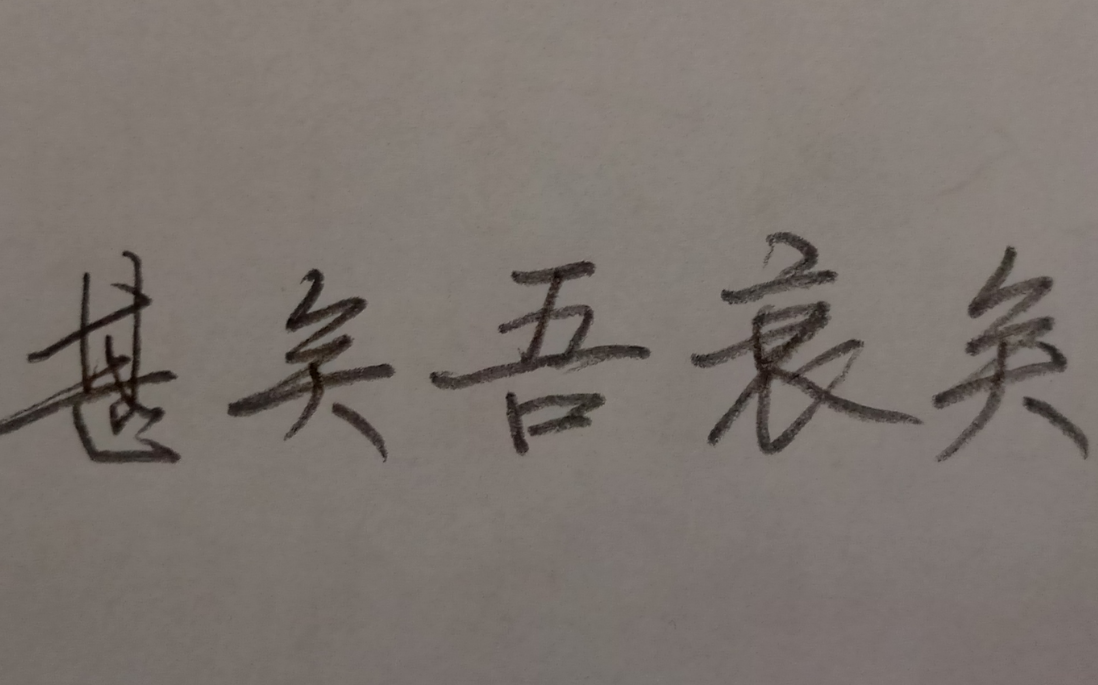 甚矣吾衰矣